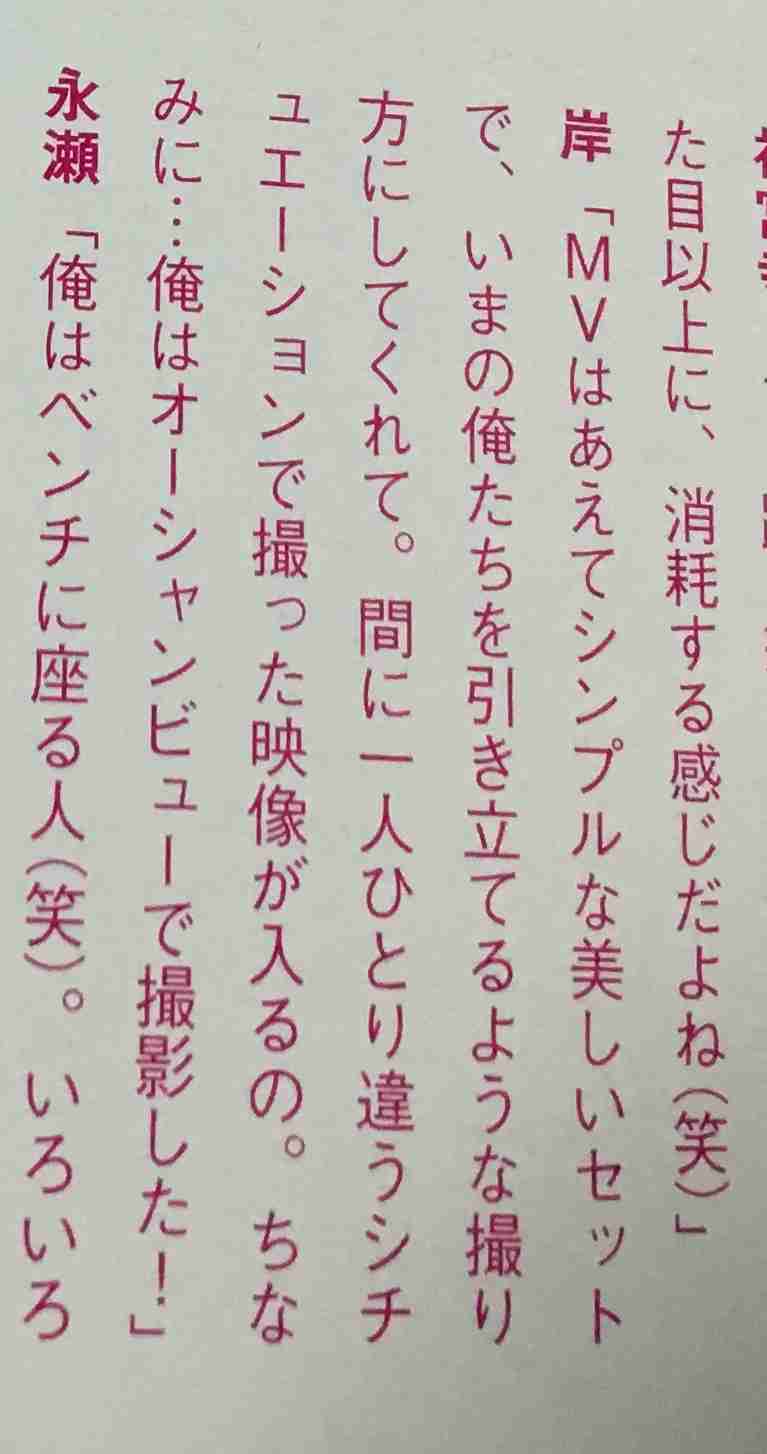 た目以上に、消耗する感じだよね(笑)」
岸「MVはあえてシンプルな美しいセット
で、いまの俺たちを引き立てるような撮り
方にしてくれて。間に一人ひとり違うシチ
ュエーションで撮った映像が入るの。ちな
みに…俺はオーシャンビューで撮影した!」
永瀬「俺はベンチに座る人(笑)。いろいろ